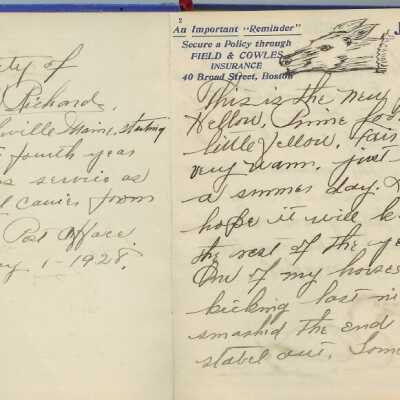 ty of
Richards.
ville Maine, starting
fourth year
service as
carrier from
Post Office.
1-1928.
2
An Important "Reminder"
Secure a Policy through
FIELD & COWLES
INSURANCE
40 Broad Street, Boston
J
This is the new
fellow, fine
little fellow, fair
very warm. just
a summer day.
hope it will k
the rest of the ye
One of my horses
kicking last ni
smashed the end
stabel out. Som